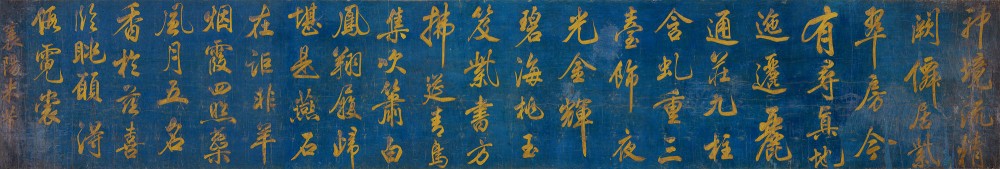 神境流精
闕僊居紫
翠房今
有尋真地
迤邐麗
通莊九柱
含虬重三
臺飾夜
光金輝
碧海桃玉
笈紫書方
拂筵青鳥
集吹簫白
鳳翔履歸
堪是燕石
在詎非羊
烟霞四照蘂
風月五名
香於茲喜
臨眺願得
伍霓裳
襄陽米芾